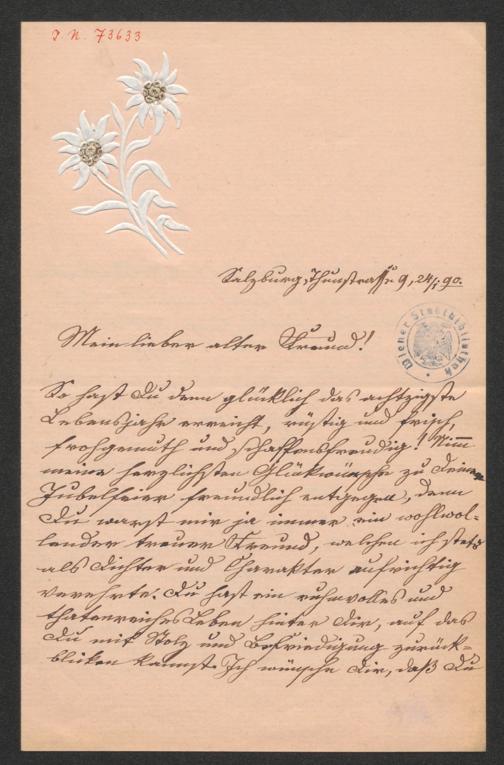 J. N. 73633
Salzburg, Thunstrasse 9, 24/I 90.
Wiener Stadtbibliothek
Mein lieber alter Freund!
So hast Du denn glücklich das achtzigste
Lebensjahr erreicht, rüstig und frisch,
frohgemuth und schaffensfreudig! Nimm
meine herzlichsten Glükwünsche zu Deiner
Jubelfeier freundlich entgegen, denn
Du warst mir ja immer ein wohlwol-
lender treuer Freund, welchen ich stets
als Dichter und Charakter aufrichtig
verehrte. Du hast ein ruhmvolles und
thatenreiches Leben hinter Dir, auf das
Du mit Stolz und Befriedigung zurück-
bliken kannst. Ich wünsche Dir, daß Du